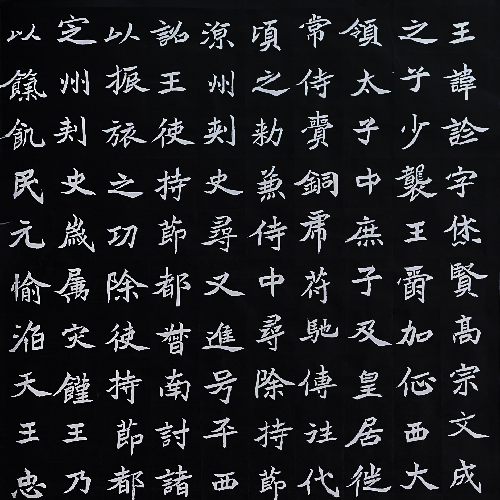 王諱診字休賢高宗文成
之子少襲王爵加征西大
領太子中庶子及皇居徙
常侍賷銅虎符馳傳詿代
頃之勑兼侍中尋除持節
涼州刺史尋又進号平西
詔王使持節都督南討諸
以振旅之功除使持節都
定州刺史歲属灾饉王乃
以餼飢民元愉滔天王忠